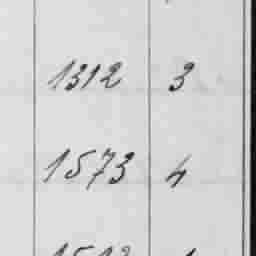 1312 3
1573 4